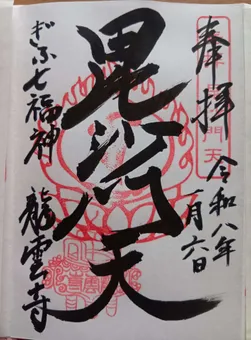 奉拝
令和八年
一月六日
毘沙门天
ぎふ七福神
龍雲寺